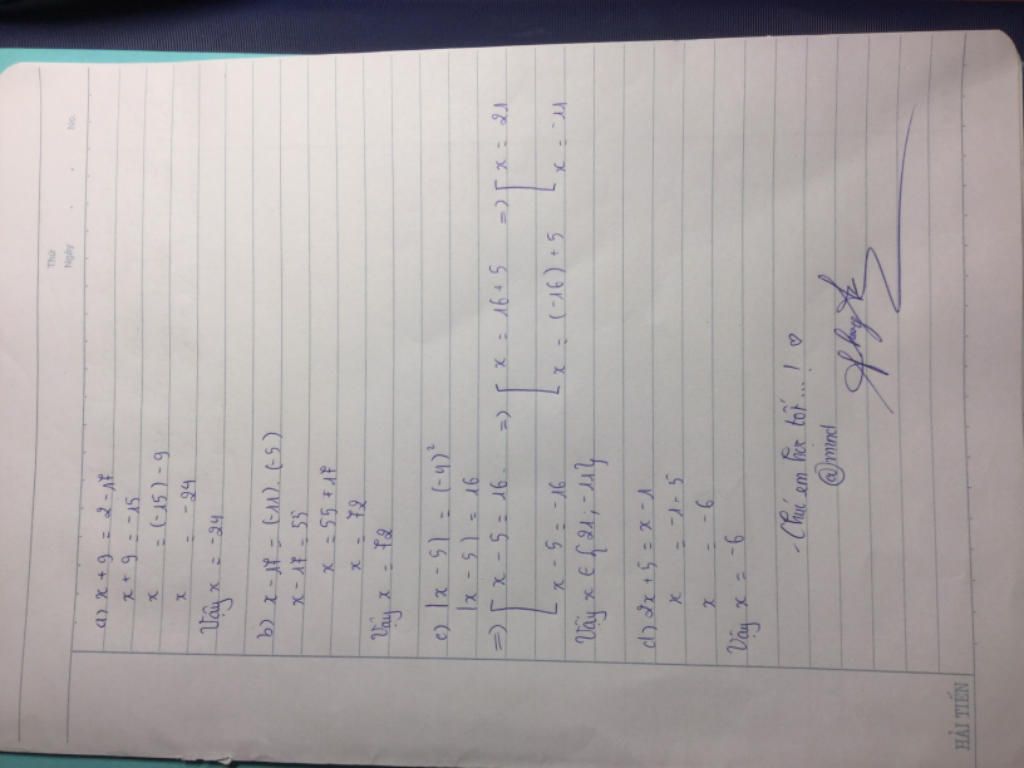 Thứ
Ngày
No.
a) x + 9 = 2 - 17
x + 9 = -15
x = (-15) - 9
x = -24
Vậy x = -24
b) x - 17 = (-11) . (-5)
x - 17 = 55
x = 55 + 17
x = 72
Vậy x = 72
c) |x - 5| = (-4)²
|x - 5| = 16
=> [ x - 5 = 16 => [ x = 16 + 5 => [ x = 21
[ x - 5 = -16 [ x = (-16) + 5 [ x = -11
Vậy x ∈ { 21 ; -11 }
d) 2x + 5 = x - 1
x = -1 - 5
x = -6
Vậy x = -6
- Chúc em học tốt ... ! ♡
@mind
HẢI TIẾN